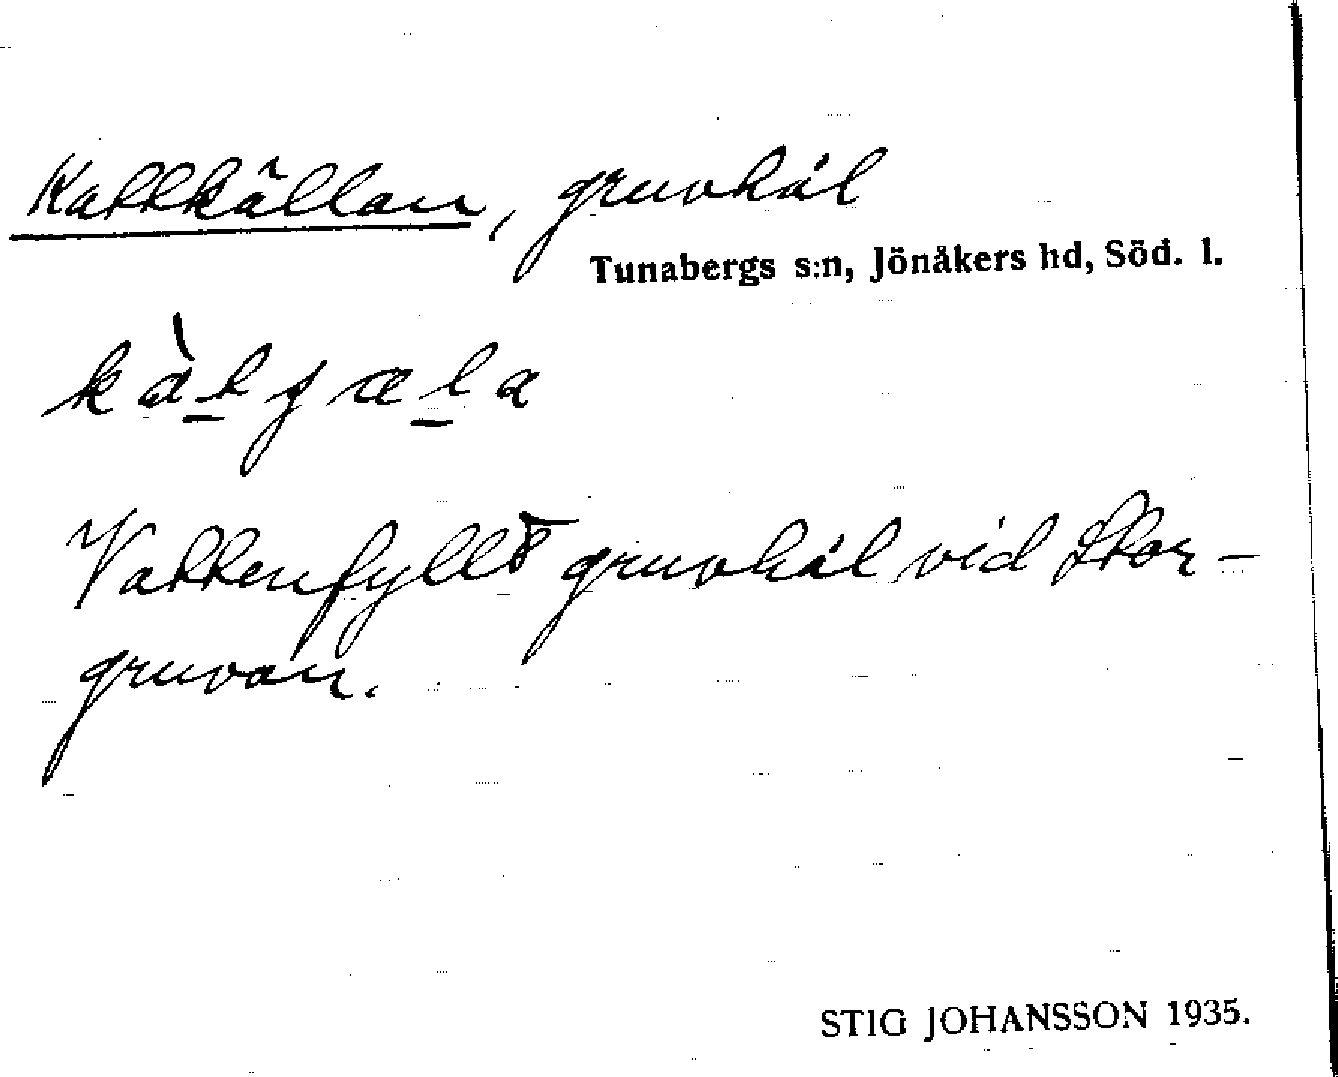 Kallkällan, gruvhål
Tunabergs s:n, Jönåkers hd, Söd. l.
Vattenfyllt gruvhål vid Stor-
gruvan.
STIG JOHANSSON 1935.